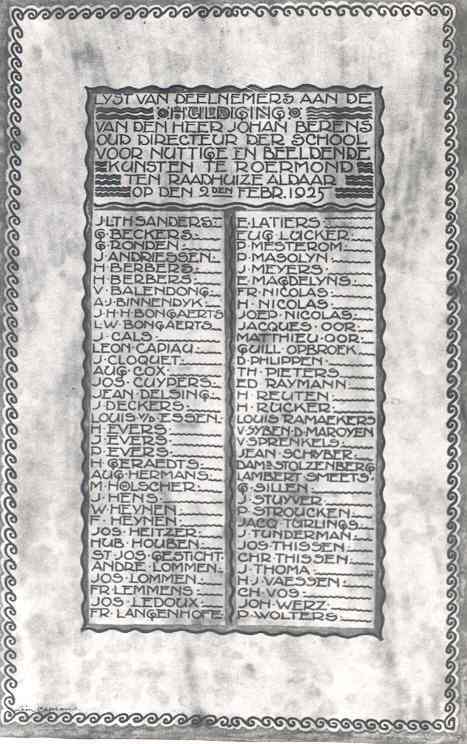 LYST VAN DEELNEMERS AAN DE
HULDIGING
VAN DEN HEER JOHAN BERENS
OUD DIRECTEUR DER SCHOOL
VOOR NUTTIGE EN BEELDENDE
KUNSTEN TE ROERMOND
TEN RAADHUIZE ALDAAR
OP DEN 2DEN FEBR. 1925
J.L.TH SANDERS
G. BECKERS
G. RONDEN
J. ANDRIESSEN
H. BERBERS
H. BERBERS
V. BALENDONG
A.J. BINNENDYK
J.H.H. BONGAERTS
L.W. BONGAERTS
J. CALS
LEON CAPIAU
J. CLOQUET
AUG COX
JOS. CUYPERS
JEAN DELSING
J. DECKERS
LOUIS V/D ESSEN
H. EVERS
J. EVERS
P. EVERS
H. GERAEDTS
AUG HERMANS
M. HOLSCHER
J. HENS
W. HEYNEN
F. HEYNEN
JOS. HEITZER
HUB. HOUBEN
ST. JOS. GESTICHT
ANDRE LOMMEN
JOS. LOMMEN
FR. LEMMENS
JOS. LEDOUX
FR. LANGENHOFE
E. LATIERS
EUG LÜCKER
P. MESTEROM
P. MASOLYN
J. MEYERS
E. MAGDELYNS
FR. NICOLAS
H. NICOLAS
JOEP NICOLAS
JACQUES OOR
MATTHIEU OOR
GUILL OPBROEK
D. PHLIPPEN
TH. PIETERS
ED RAYMANN
H. REUTEN
H. RÜCKER
LOUIS RAMAEKERS
V. SYBEN D. MAROYEN
V. SPRENKELS
JEAN SCHYBER
STOLZENBERG
LAMBERT SMEETS
G. SILLEN
J. STUYVER
P. STROUCKEN
JACQ TURLINGS
J. TUNDERMAN
JOS. THISSEN
CHR. THISSEN
J. THOMA
H.J. VAESSEN
CH. VOS
JOH. WERZ
P. WOLTERS